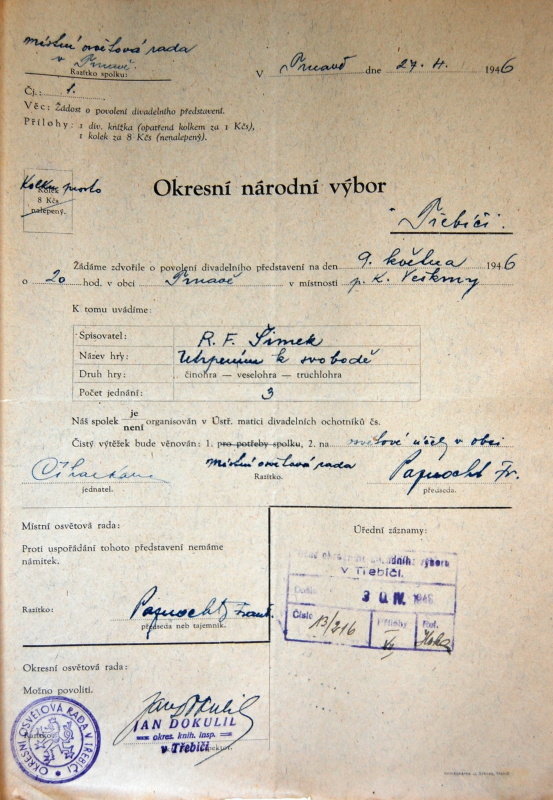 místní osvětová rada
v Trnavě.
Razítko spolku:
V Trnavě dne 27. 4. 1946
Čj.: 1.
Věc: Žádost o povolení divadelního představení.
Přílohy: 1 div. knížka (opatřená kolkem za 1 Kčs),
1 kolek za 8 Kčs (nenalepený).
Kolku prosto
Kolek
8 Kčs
nalepený.
Okresní národní výbor
Třebíči.
Žádáme zdvořile o povolení divadelního představení na den 9. května 1946
o 20 hod. v obci Trnavě v místnosti p. K. Veškrny
K tomu uvádíme:
Spisovatel: R. F. Šimek
Název hry: Utrpením k svobodě
Druh hry: činohra — veselohra — truchlohra
Počet jednání: 3
Náš spolek je není organisován v Ústř. matici divadelních ochotníků čs.
Čistý výtěžek bude věnován: 1. pro potřeby spolku, 2. na osvětové účely v obci
místní osvětová rada Fr.
jednatel. Razítko. předseda.
Místní osvětová rada:
Proti uspořádání tohoto představení nemáme
námitek.
Razítko:
předseda neb tajemník.
Úřední záznamy:
okresního národního výboru
v Třebíči.
Došlo 30. IV. 1946
Číslo 13/216 Přílohy Ref.
Okresní osvětová rada:
Možno povoliti.
Jan Dokulil
JAN DOKULIL
okres. knih. insp.
v Třebíči
OKRESNÍ OSVĚTOVÁ RADA V TŘEBÍČI